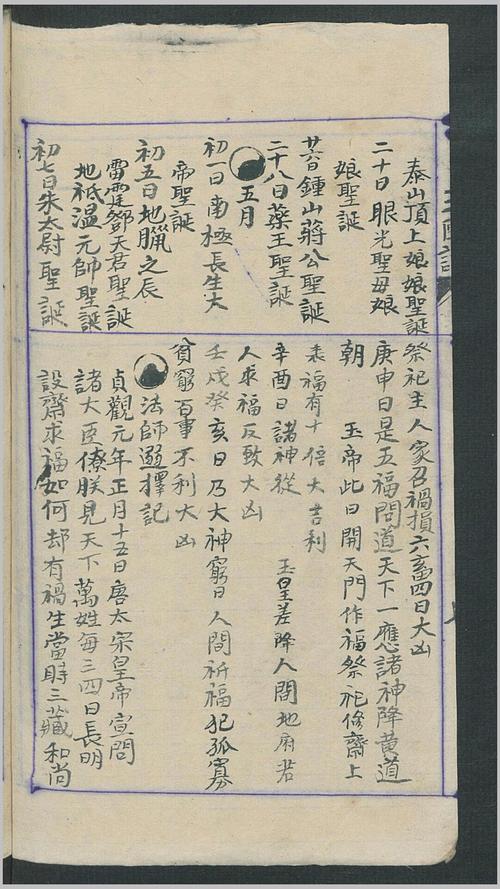 泰山頂上娘娘聖誕
二十日 眼光聖母娘
娘聖誕
廿六日鍾山蔣公聖誕
二十八日藥王聖誕
五月
初一日南極長生大
帝聖誕
初五日地臘之辰
雷霆鄧天君聖誕
地祇溫元帥聖誕
初七日朱太尉聖誕
祭祀主人家召禍損六畜四日大凶
庚申日是五福問道天下一應諸神降黃道
朝 玉帝此日開天門作福祭祀修齋上
表福有十倍大吉利
辛酉日諸神從 玉皇差降人間地府若
人求福反致大凶
壬戌癸亥日乃大神窮日人間祈福犯孤寡
貧窮百事不利大凶
法師選擇記
貞觀元年正月十五日唐太宗皇帝宣問
諸大臣僚朕見天下萬姓每三四日長明
設齋求福如何却有禍生當時三藏和尚